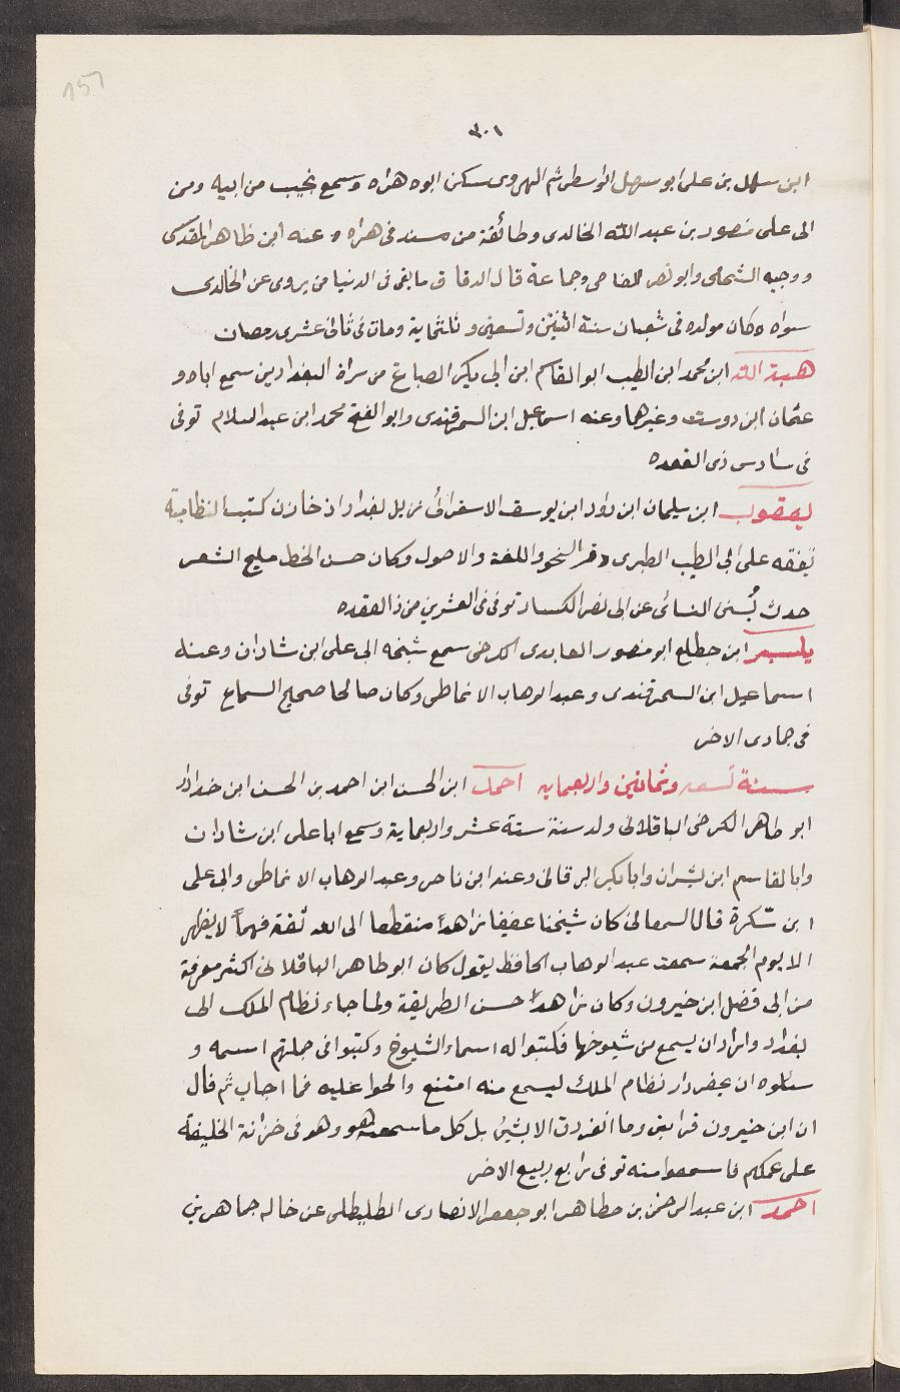 151
٣٠١
ابن سهل بن على ابو سهل الواسطى ثم الهروى سكن ابوه هراه وسمع نجيب من ابيه ومن
ابى على منصور بن عبد الله الخالدى وطائفة من مسند فى هراه وعنه ابن طاهر المقدسى
ووجيه الشحامى وابو نصر وجماعة قال الدقاق ما بقى فى الدنيا من يروى عن الخالدى
سواه وكان مولده فى شعبان سنة اثنين وتسعين وثلثماية ومات فى ثانى عشرى رمضان
هبة الله ابن محمد ابن الطيب ابو القاسم ابن ابى بكر الصباغ من سراة البغدادين سمع اباه و
عثمان ابن دوست وغيرهما وعنه اسماعيل ابن السمرقندى وابو الفتح محمد ابن عبد السلام توفى
فى سادس ذى القعده
يعقوب ابن سليمان ابن داود ابن يوسف الاسفرائى نزيل بغداد اذ خازن كتب النظامية
تفقه على ابى الطيب الطبرى وقر النحو واللغة والاصول وكان حسن الخط مليح الشعر
حدث بسنن النسائى عن ابى نصر الكسار توفى فى العشرين من ذا لقعده
ابن خطلع ابو منصور العابدى الكرخى سمع شيخه ابى على ابن شاذان وعنه
اسماعيل ابن السمرقندى وعبد الوهاب الانماطى وكان صالحا صحيح السماع توفى
فى جمادى الاخر
سنة تسعه وثمانين واربعمايه احمد ابن الحسن ابن احمد بن الحسن ابن خداداد
ابو طاهر الكرخى الباقلانى ولد سنة ستة عشر واربعماية وسمع ابا على ابن شاذان
وابا لقاسم ابن بشران وابا بكر البرقانى وعنه ابن ناصر وعبد الوهاب الانماطى وابى على
ابن سكرة قال السمعانى كان شيخنا عفيفا زاهدا منقطعا الى الله ثقة فهماً لا يظهر
الا يوم الجمعة سمعت عبد الوهاب الحافظ يقول كان ابو طاهر الباقلانى اكثر معرفة
من ابى فضل ابن خيرون وكان زاهداً حسن الطريقة ولما جاء نظام الملك الى
بغداد واراد ان يسمع من شيوخها فكتبوا له اسماء الشيوخ وكتبوا فى جملتهم اسمه و
سئلوه ان يحضر دار نظام الملك ليسمع منه امتنع والحوا عليه فما اجاب ثم قال
ان ابن خيرون قرابتى وما انفردت الا بشئ بل كل ما سمعته هو وهو فى خزانة الخليفة
على عمكم فاسمعوا منه توفى رابع ربيع الاخر
احمد ابن عبد الرحمن بن مطاهر ابو جعفر الانصارى الطليطلى عن خاله جماهر بن